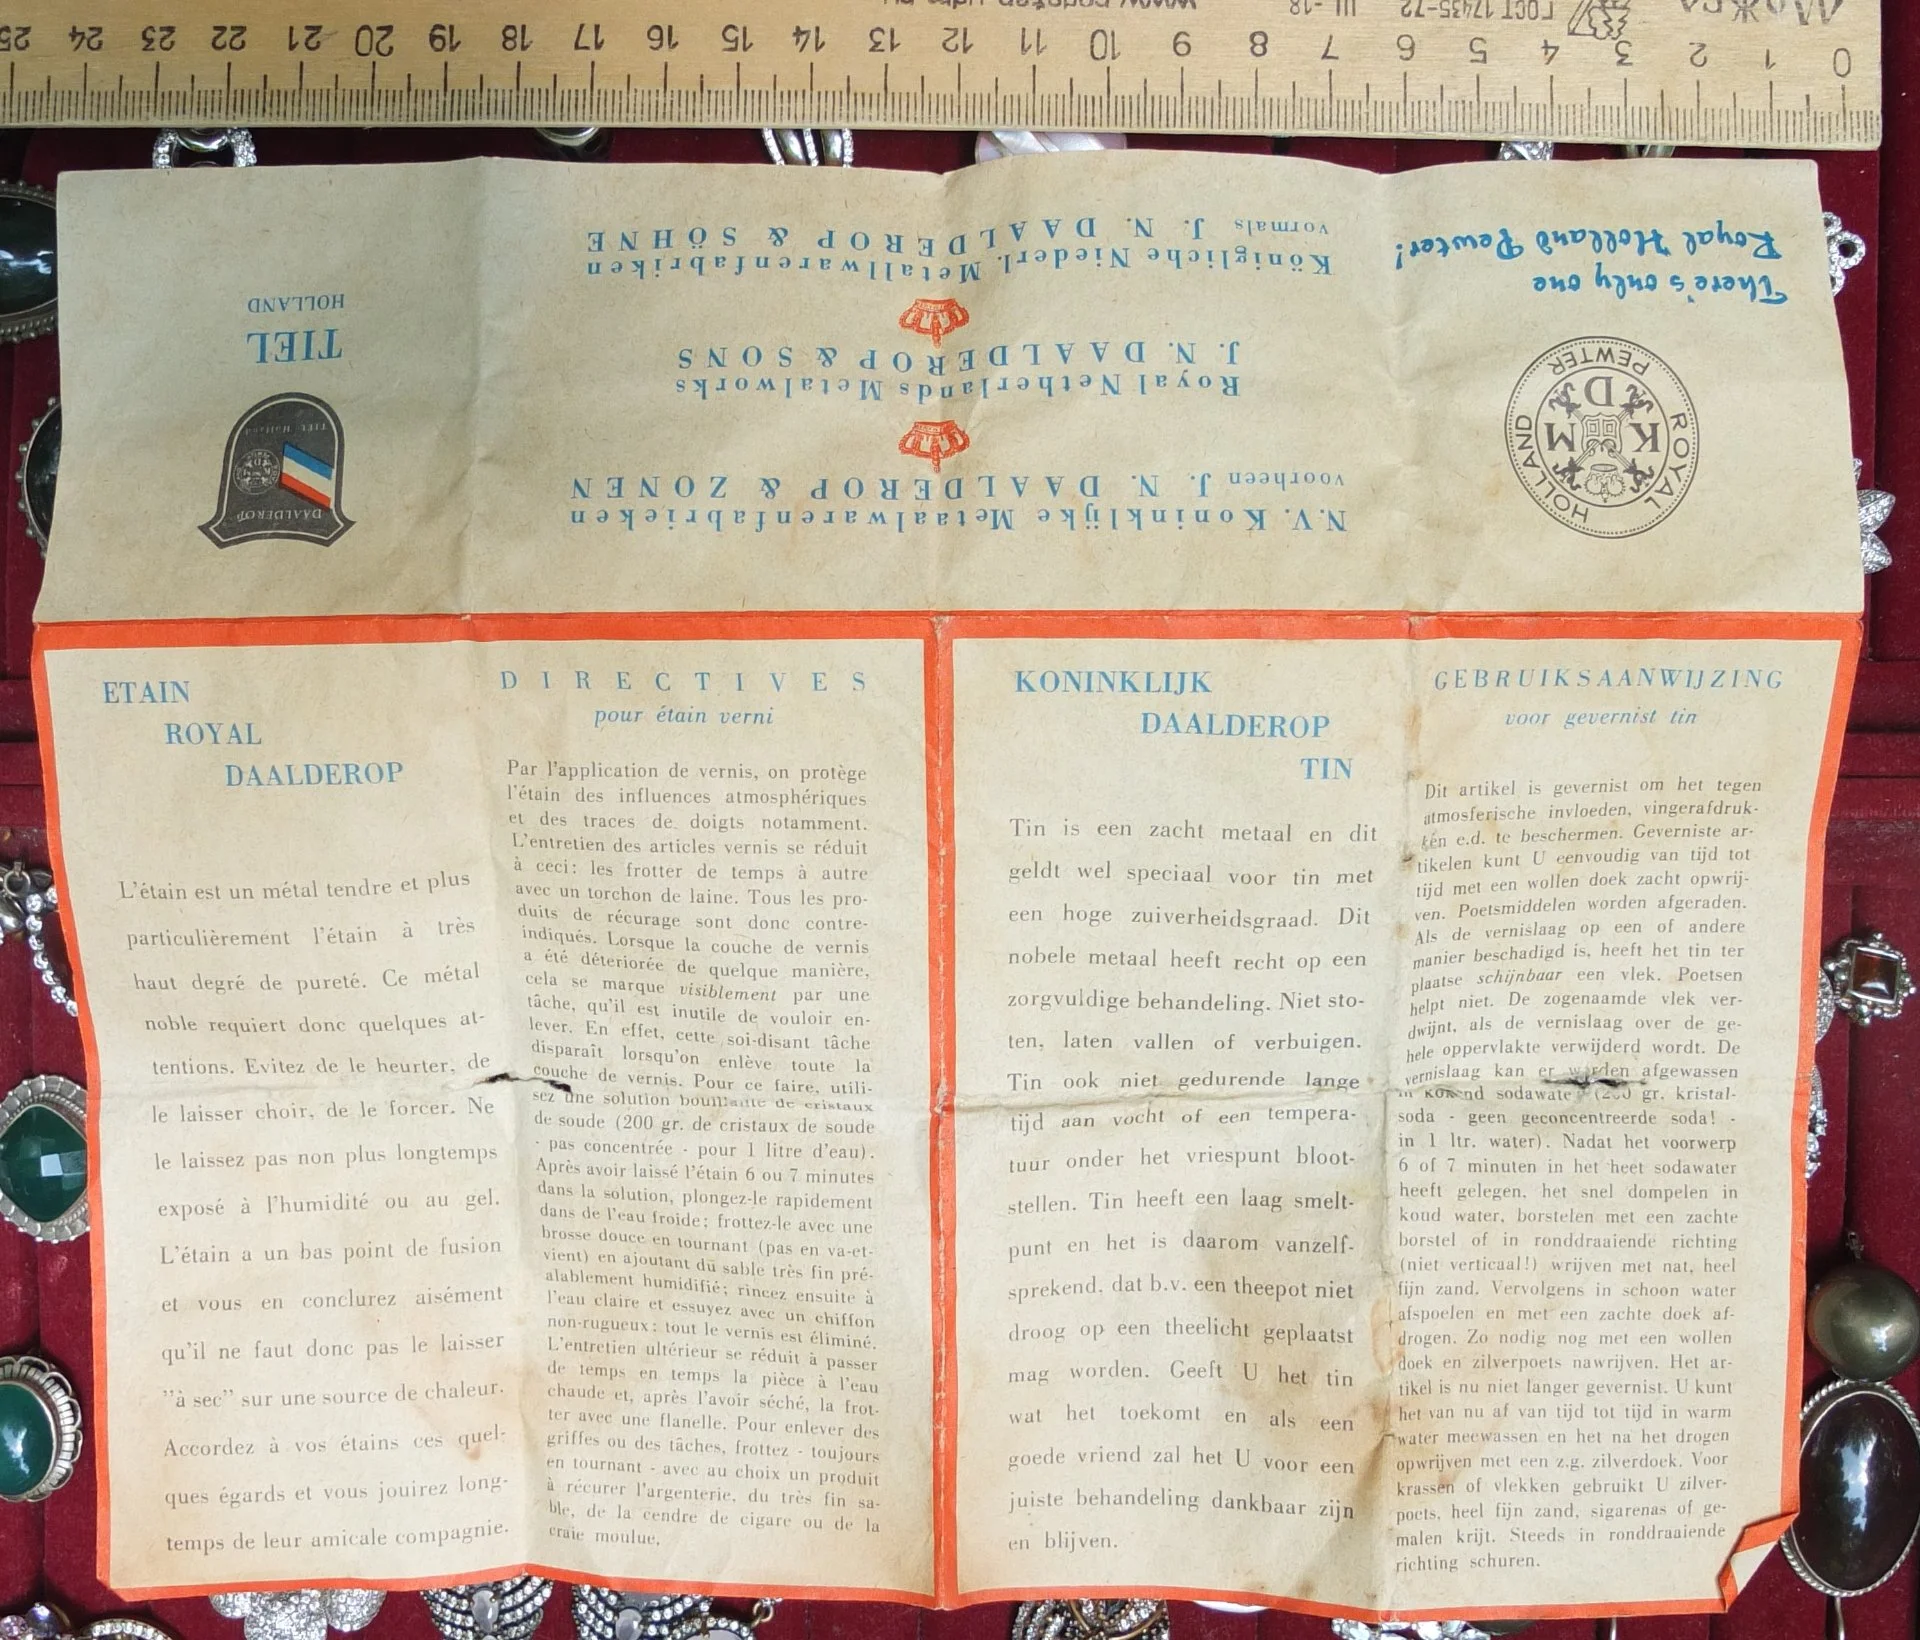 25 24 23 22 21 20 19 18 17 16 15 14 13 12 11 10 9 8 7 6 5 4 3 2 1 0
ГОСТ 17435-72
Можга
There's only one
Royal Holland Pewter!
ROYAL HOLLAND PEWTER
K M D
N.V. Koninklijke Metaalwarenfabrieken
voorheen J. N. DAALDEROP & ZONEN
Royal Netherlands Metalworks
J. N. DAALDEROP & SONS
Königliche Niederl. Metallwarenfabriken
vormals J. N. DAALDEROP & SÖHNE
DAALDEROP
TIEL Holland
TIEL
HOLLAND
ETAIN
ROYAL
DAALDEROP
L'étain est un métal tendre et plus
particulièrement l'étain à très
haut degré de pureté. Ce métal
noble requiert donc quelques at-
tentions. Evitez de le heurter, de
le laisser choir, de le forcer. Ne
le laissez pas non plus longtemps
exposé à l'humidité ou au gel.
L'étain a un bas point de fusion
et vous en conclurez aisément
qu'il ne faut donc pas le laisser
"à sec" sur une source de chaleur.
Accordez à vos étains ces quel-
ques égards et vous jouirez long-
temps de leur amicale compagnie.
DIRECTIVES
pour étain verni
Par l'application de vernis, on protège
l'étain des influences atmosphériques
et des traces de doigts notamment.
L'entretien des articles vernis se réduit
à ceci: les frotter de temps à autre
avec un torchon de laine. Tous les pro-
duits de récurage sont donc contre-
indiqués. Lorsque la couche de vernis
a été déteriorée de quelque manière,
cela se marque visiblement par une
tâche, qu'il est inutile de vouloir en-
lever. En effet, cette soi-disant tâche
disparaît lorsqu'on enlève toute la
couche de vernis. Pour ce faire, utili-
sez une solution bouillante de cristaux
de soude (200 gr. de cristaux de soude
- pas concentrée - pour 1 litre d'eau).
Après avoir laissé l'étain 6 ou 7 minutes
dans la solution, plongez-le rapidement
dans de l'eau froide; frottez-le avec une
brosse douce en tournant (pas en va-et-
vient) en ajoutant du sable très fin pré-
alablement humidifié; rincez ensuite à
l'eau claire et essuyez avec un chiffon
non-rugueux: tout le vernis est éliminé.
L'entretien ultérieur se réduit à passer
de temps en temps la pièce à l'eau
chaude et, après l'avoir séché, la frot-
ter avec une flanelle. Pour enlever des
griffes ou des tâches, frottez - toujours
en tournant - avec au choix un produit
à récurer l'argenterie, du très fin sa-
ble, de la cendre de cigare ou de la
craie moulue.
KONINKLIJK
DAALDEROP
TIN
Tin is een zacht metaal en dit
geldt wel speciaal voor tin met
een hoge zuiverheidsgraad. Dit
nobele metaal heeft recht op een
zorgvuldige behandeling. Niet sto-
ten, laten vallen of verbuigen.
Tin ook niet gedurende lange
tijd aan vocht of een tempera-
tuur onder het vriespunt bloot-
stellen. Tin heeft een laag smelt-
punt en het is daarom vanzelf-
sprekend, dat b.v. een theepot niet
droog op een theelicht geplaatst
mag worden. Geeft U het tin
wat het toekomt en als een
goede vriend zal het U voor een
juiste behandeling dankbaar zijn
en blijven.
GEBRUIKSAANWIJZING
voor gevernist tin
Dit artikel is gevernist om het tegen
atmosferische invloeden, vingerafdruk-
ken e.d. te beschermen. Geverniste ar-
tikelen kunt U eenvoudig van tijd tot
tijd met een wollen doek zacht opwrij-
ven. Poetsmiddelen worden afgeraden.
Als de vernislaag op een of andere
manier beschadigd is, heeft het tin ter
plaatse schijnbaar een vlek. Poetsen
helpt niet. De zogenaamde vlek ver-
dwijnt, als de vernislaag over de ge-
hele oppervlakte verwijderd wordt. De
vernislaag kan er worden afgewassen
in kokend sodawater (200 gr. kristal-
soda - geen geconcentreerde soda! -
in 1 ltr. water). Nadat het voorwerp
6 of 7 minuten in het heet sodawater
heeft gelegen, het snel dompelen in
koud water, borstelen met een zachte
borstel of in ronddraaiende richting
(niet verticaal!) wrijven met nat, heel
fijn zand. Vervolgens in schoon water
afspoelen en met een zachte doek af-
drogen. Zo nodig nog met een wollen
doek en zilverpoets nawrijven. Het ar-
tikel is nu niet langer gevernist. U kunt
het van nu af van tijd tot tijd in warm
water meewassen en het na het drogen
opwrijven met een z.g. zilverdoek. Voor
krassen of vlekken gebruikt U zilver-
poets, heel fijn zand, sigarenas of ge-
malen krijt. Steeds in ronddraaiende
richting schuren.